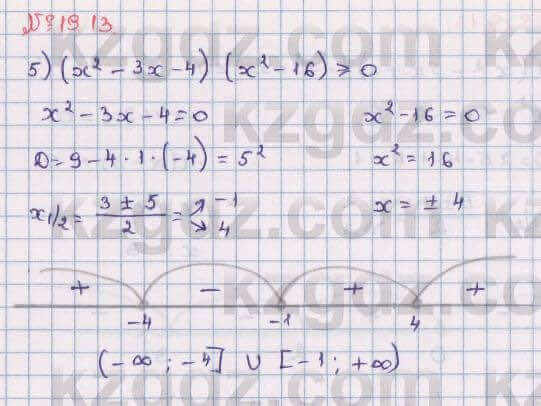 № 19.13.
5) (x² – 3x – 4) (x² – 16) ≥ 0
x² – 3x – 4 = 0 x² – 16 = 0
D = 9 – 4 · 1 · (–4) = 5² x² = 16
x₁/₂ = (3 ± 5)/2 = ↗ –1 ↘ 4 x = ± 4
+ – + +
–4 –1 4
(–∞ ; –4] ∪ [–1 ; +∞)
kzgdz.com